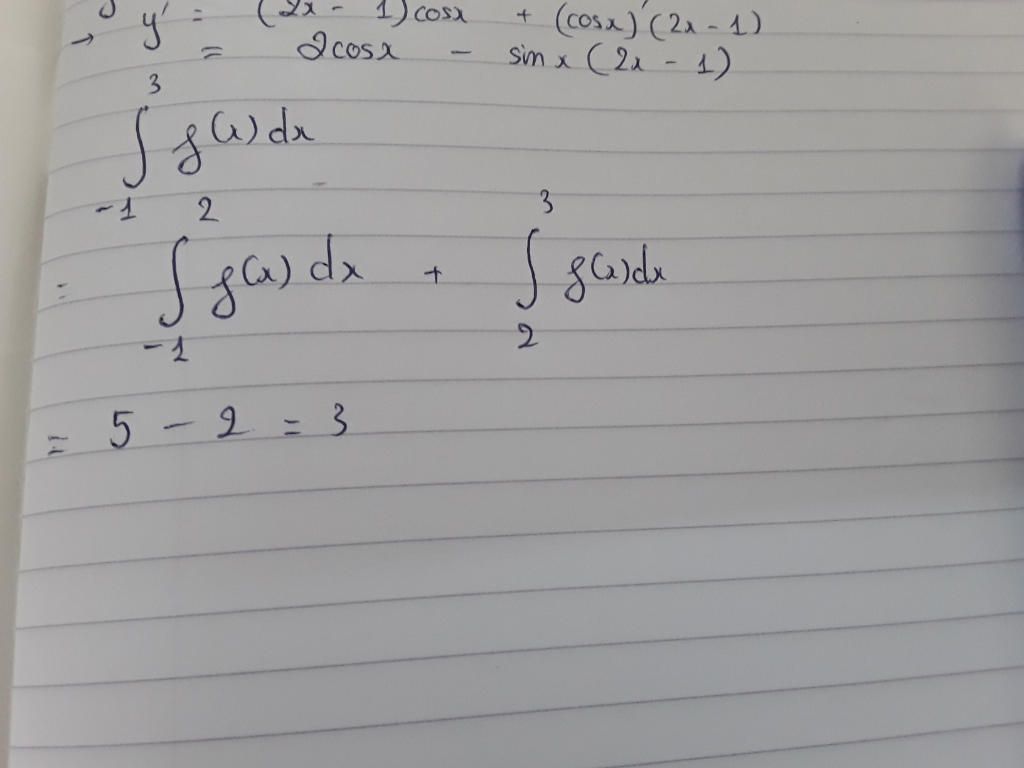 → y' = (2x - 1)cosx + (cosx)'(2x - 1)
= 2cosx - sinx(2x - 1)
∫_{-1}^{3} f(x) dx
= ∫_{-1}^{2} f(x) dx + ∫_{2}^{3} f(x) dx
= 5 - 2 = 3